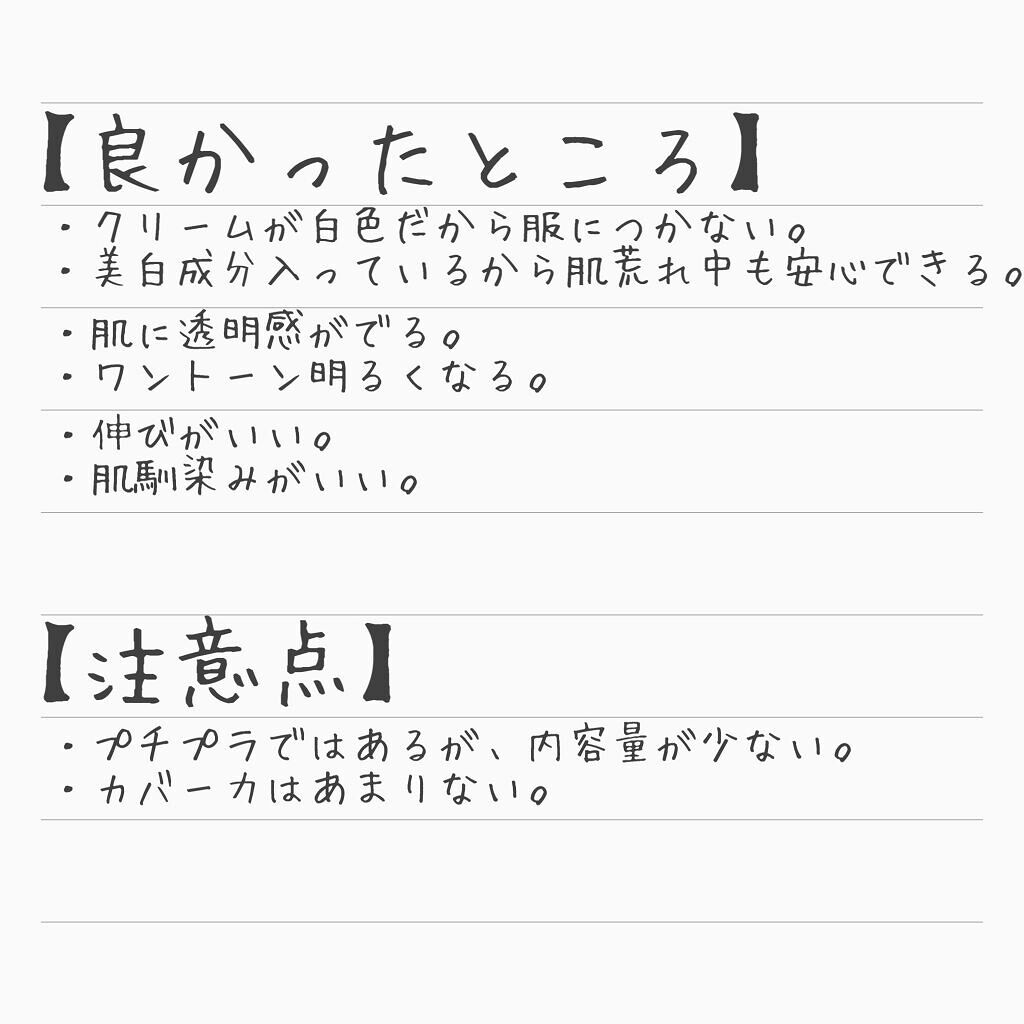 【良かったところ】
・クリームが白色だから服につかない。
・美白成分入っているから肌荒れ中も安心できる。
・肌に透明感がでる。
・ワントーン明るくなる。
・伸びがいい。
・肌馴染みがいい。
【注意点】
・プチプラではあるが、内容量が少ない。
・カバー力はあまりない。